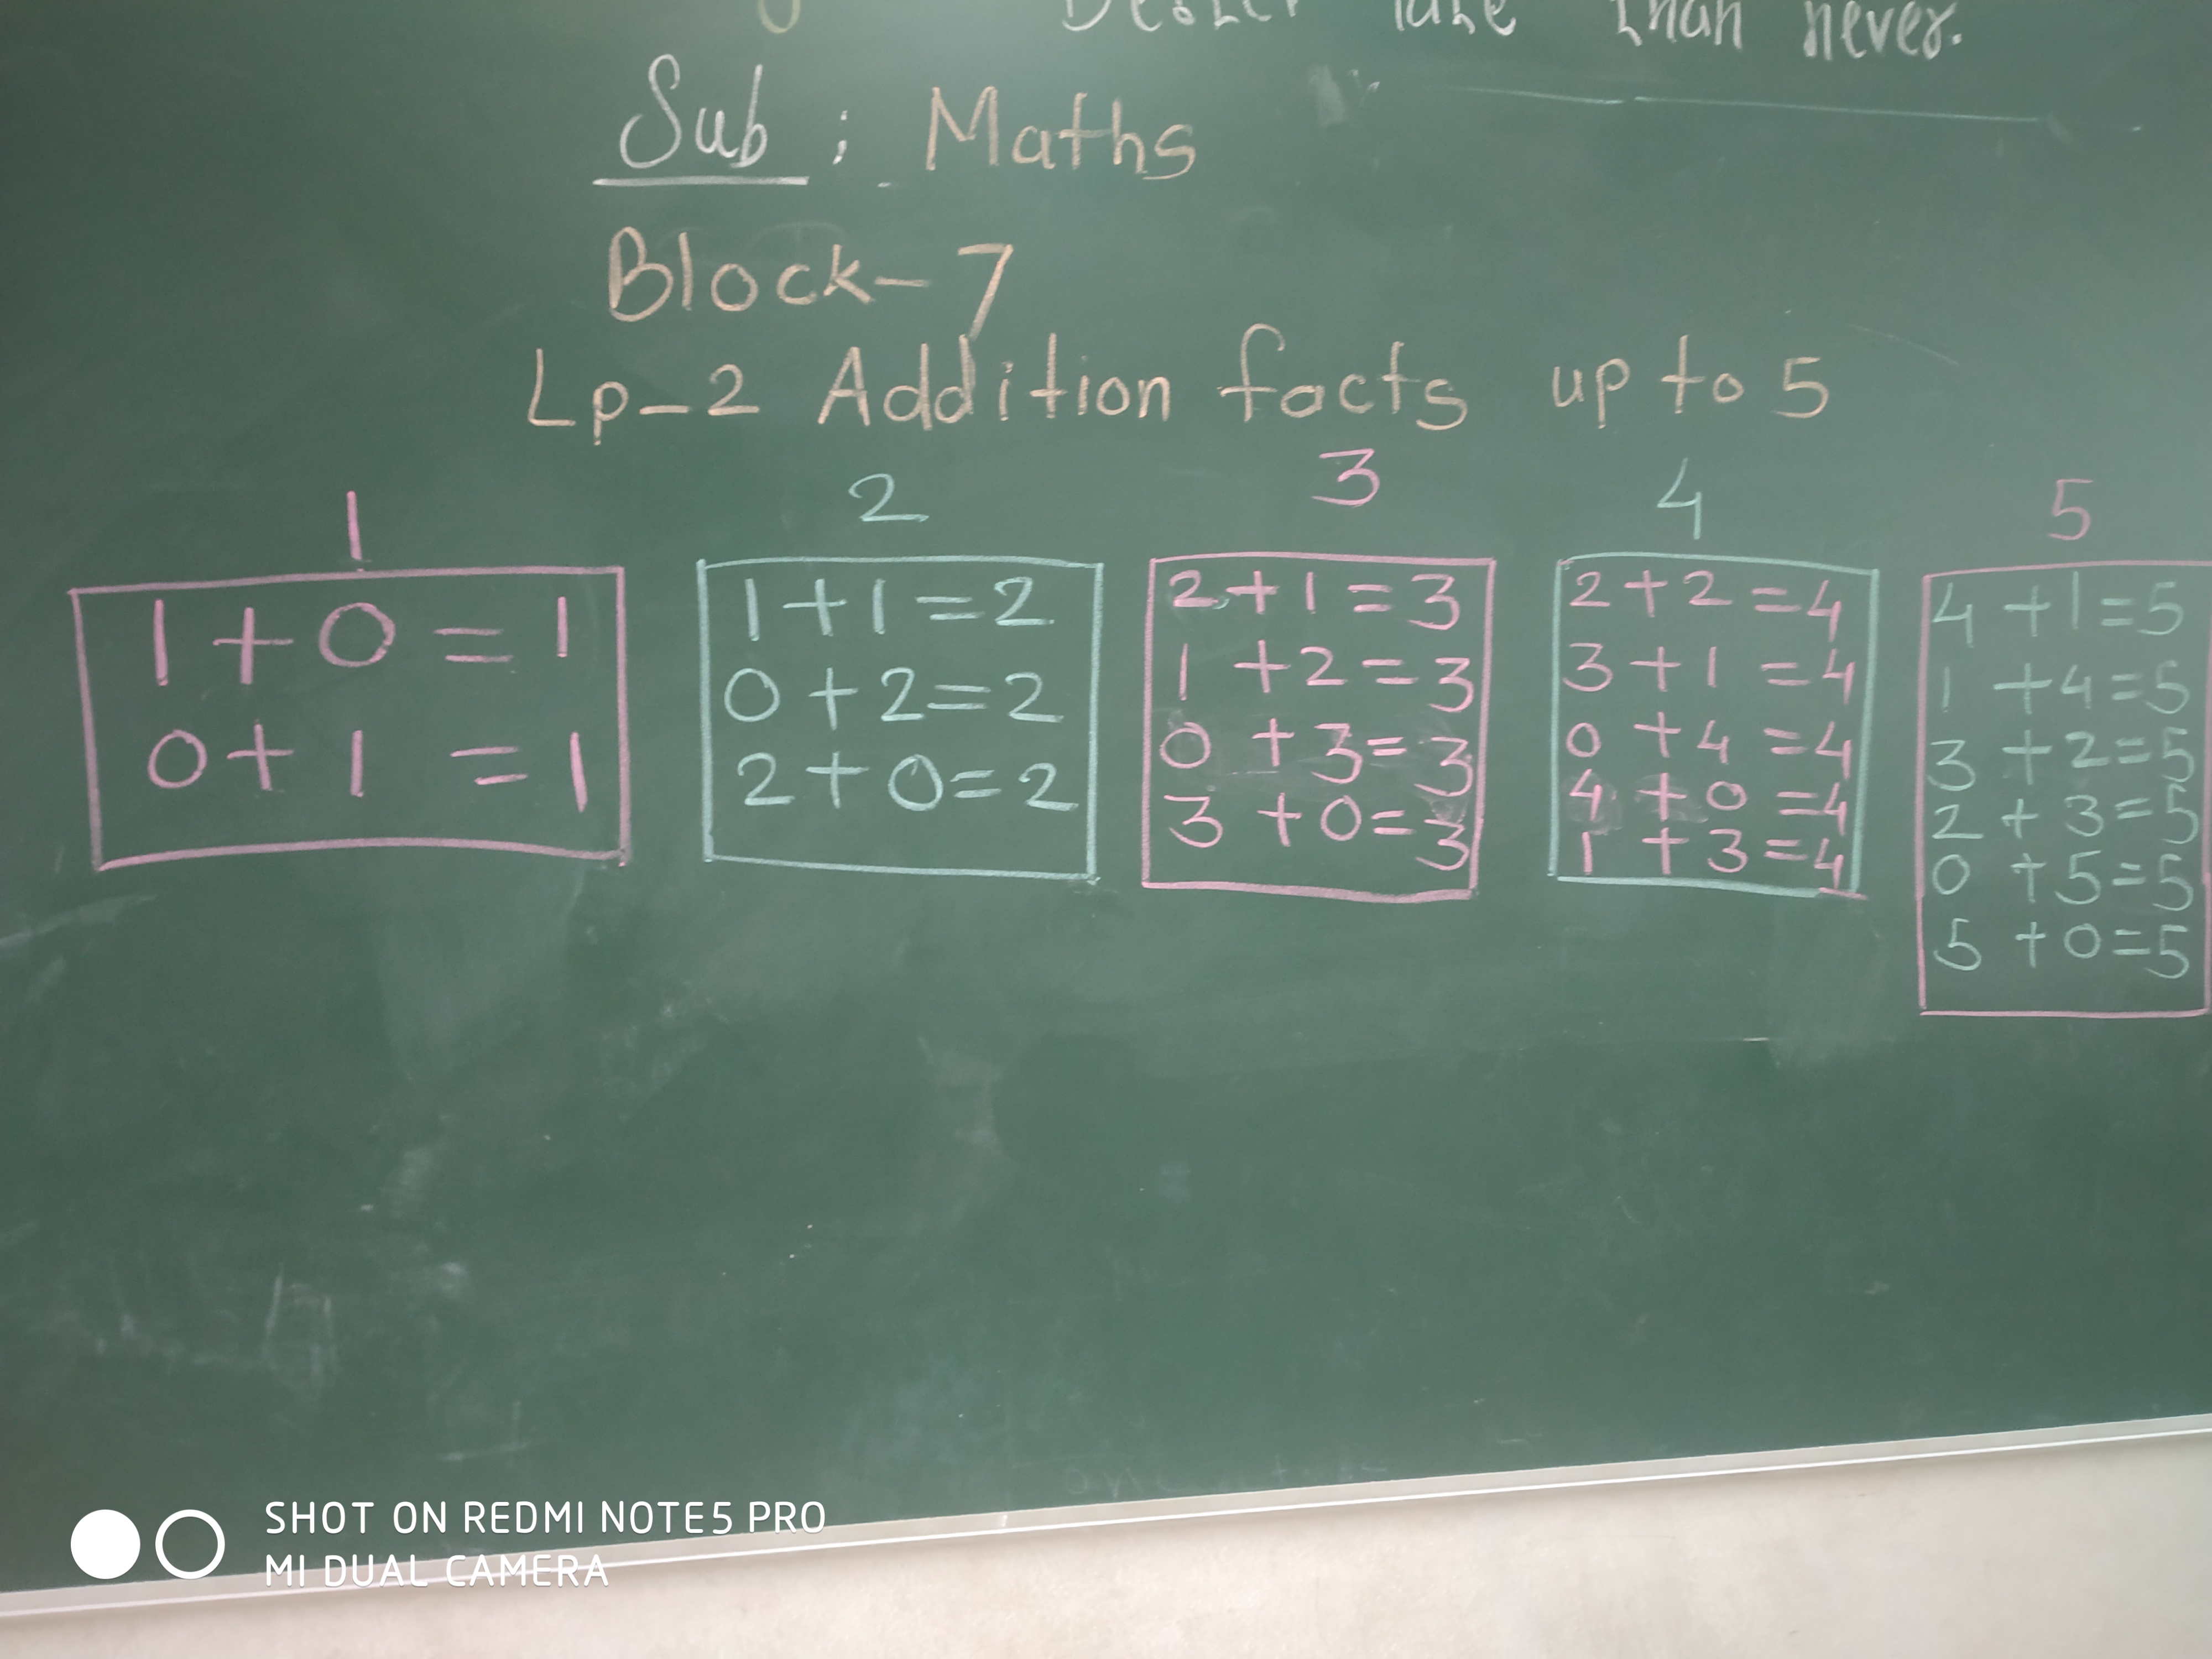 Better late than never.
Sub : Maths
Block-7
Lp-2 Addition facts up to 5
1
1+0=1
0+1=1
2
1+1=2
0+2=2
2+0=2
3
2+1=3
1+2=3
0+3=3
3+0=3
4
2+2=4
3+1=4
0+4=4
4+0=4
1+3=4
5
4+1=5
1+4=5
3+2=5
2+3=5
0+5=5
5+0=5
SHOT ON REDMI NOTE5 PRO
MI DUAL CAMERA